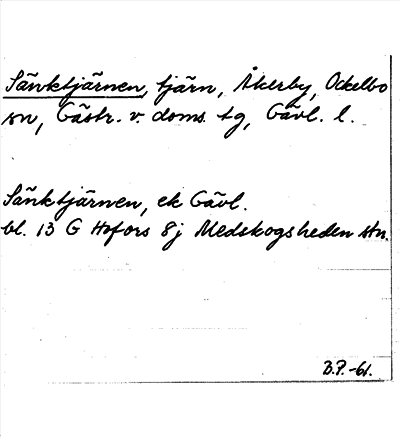 Sänktjärnen, tjärn, Åkerby, Ockelbo
sn, Gästr. v. doms. tg, Gävl. l.
Sänktjärnen, ek Gävl.
bl. 13 G Hofors 8j Medskogsheden stn.
B.P.-61.